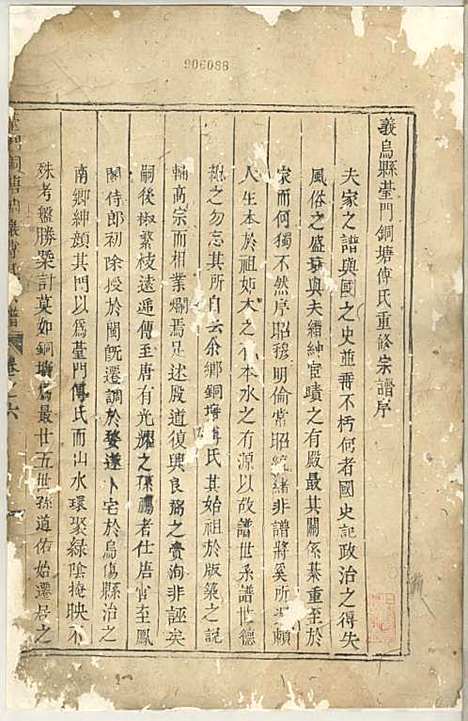 906088
義烏縣臺門銅塘傅氏重修宗譜序
夫家之譜與國之史並垂不朽何者國史記政治之得失
風俗之盛與夫縉紳宦蹟之有殿最其關係綦重至於
家而何獨不然序昭穆明倫常昭統緒非譜將奚所賴
人生本於祖如木之有本水之有源以故譜世系譜世德
之勿忘其所自云余鄉銅塘傅氏其始祖於版築之說
輔高宗而相業爛焉足述殷道復興良弼之賚洵非誣矣
嗣後椒繁枝遠遞傳至唐有光之孫者仕唐官至鳳
閣侍郎初除授於閩旣遷調於婺遂卜宅於烏傷縣治之
南鄉紳顔其門以為臺門傅氏而山水環聚綠陰掩映不
殊考盤勝槩計莫如銅塘為最廿五世孫道佑始遷居之
臺門銅塘傅氏宗譜 卷之六